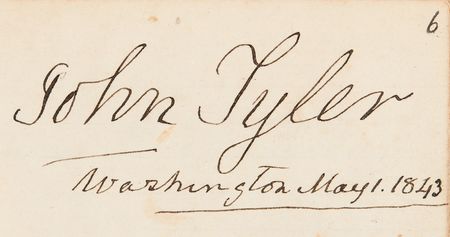 6
John Tyler
Washington May 1. 1843